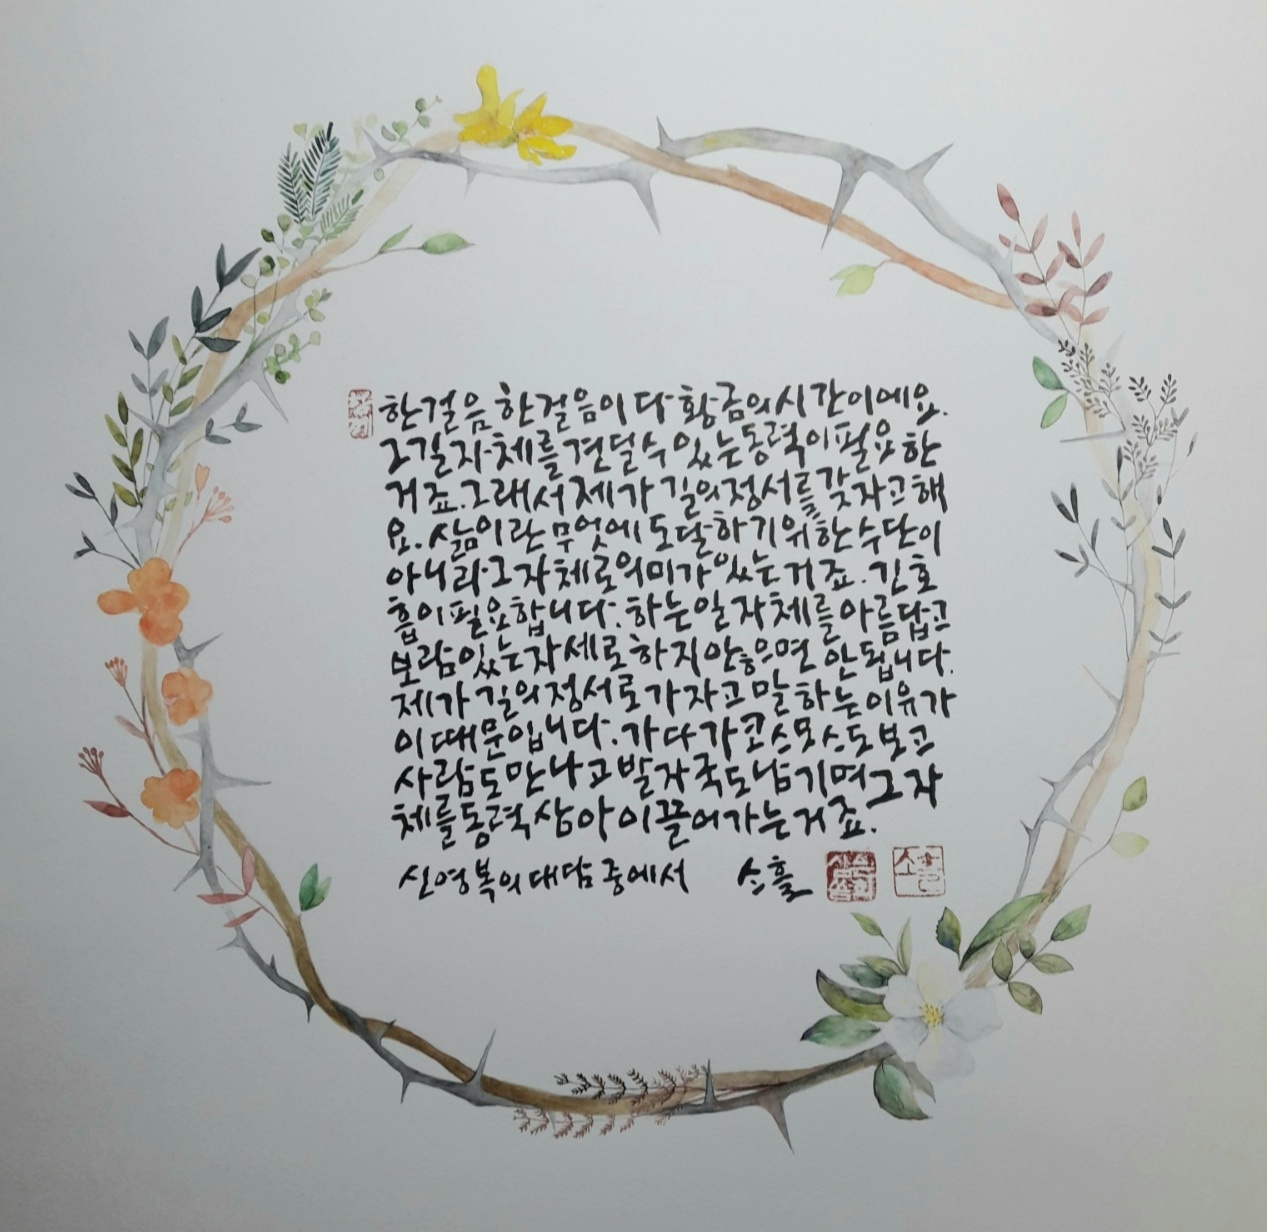 한걸음 한걸음이 다 황금의 시간이에요.
그 길 자체를 견딜 수 있는 동력이 필요한
거죠. 그래서 제가 길의 정서를 갖자고 해
요. 삶이란 무엇에 도달하기 위한 수단이
아니라 그 자체로 의미가 있는 거죠. 긴 호
흡이 필요합니다. 하는 일 자체를 아름답고
보람있는 자세로 하지 안흥으면 안 됩니다.
제가 길의 정서로 가자고 말하는 이유가
이 때문입니다. 가다가 코스모스도 보고
사람도 만나고 발자국도 남기며 그 자
체를 동력 삼아 이끌어가는 거죠.
신영복의 대담 중에서 소흘